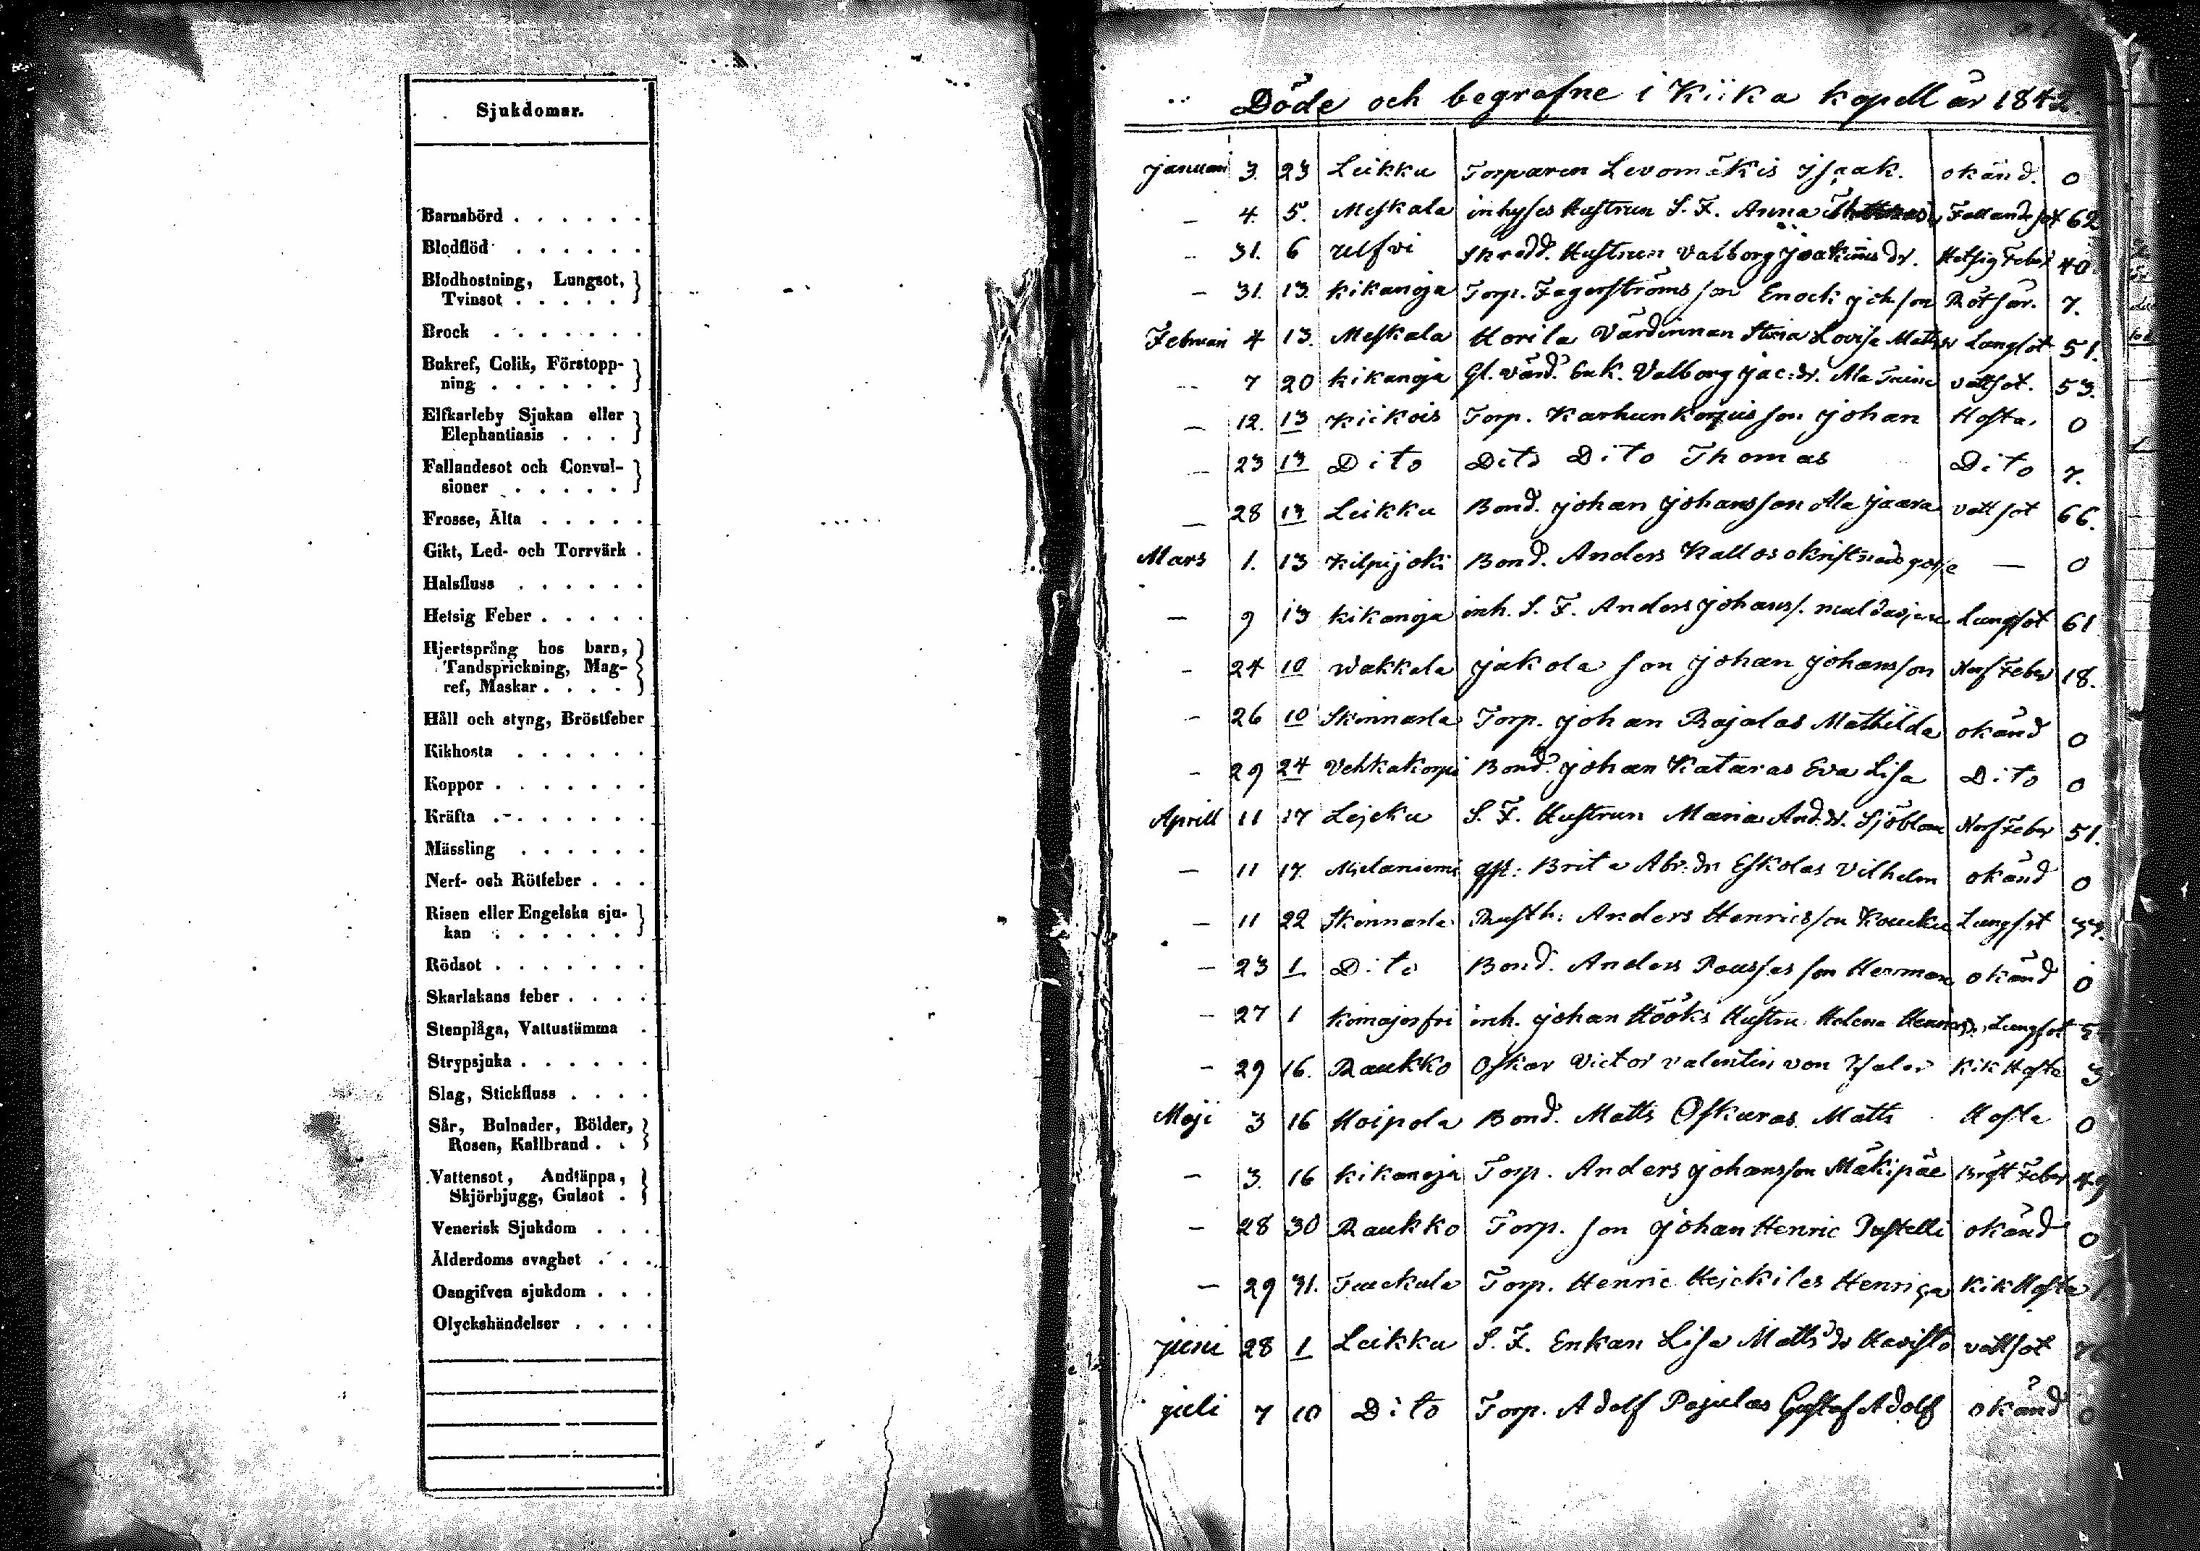 Sjukdomar.
Barnsbörd . . . . . .
Blodflöd . . . . . .
Blodhostning, Lungsot,
Tvinsot . . . . .
Brock . . . . . .
Bukref, Colik, Förstopp-
ning . . . . . .
Elfkarleby Sjukan eller
Elephantiasis . . .
Fallandesot och Convul-
sioner . . . . .
Frosse, Älta . . . . .
Gikt, Led- och Torrvärk .
Halsfluss . . . . . .
Hetsig Feber . . . . .
Hjertsprång hos barn,
Tandsprickning, Mag-
ref, Maskar . . . .
Håll och styng, Bröstfeber
Kikhosta . . . . . .
Koppor . . . . . . .
Kräfta . . . . . . .
Mässling . . . . . .
Nerf- och Rötfeber . . .
Risen eller Engelska sju-
kan . . . . . .
Rödsot . . . . . . .
Skarlakans feber . . . .
Stenplåga, Vattustämma .
Strypsjuka . . . . . .
Slag, Stickfluss . . . .
Sår, Bulnader, Bölder,
Rosen, Kallbrand . .
Vattensot, Andtäppa,
Skjörbjugg, Gulsot .
Venerisk Sjukdom . . .
Ålderdoms svaghet . . .
Oangifven sjukdom . . .
Olyckshändelser . . . .
Döde och begrafne i Kiika kapell år 1842.
januari 3. 23 Leikku Torparen Levomäkis Isaak. okänd. 0
– 4. 5. Meskala inhyses Hustrun S. F. Anna Fallandesot 62
– 31. 6 Ulfvi Skrädd. Hustrun Valborg Joakimsdr. Hetsig Feber 40
– 31. 13. Kikanoja Torp. Fagerströms son Enock Johson Rötsår. 7.
Februari 4 13. Meskala Horila Värdinnan Stina Lovisa Lungsot 51.
– 7 20 Kikanoja Gl. värd. Enk. Valborg Jac:dr. Ala vattsot. 53.
– 12. 13 Kiikois Torp. Karhunkorpis son Johan Hosta. 0
– 23 13 Dito Dito Dito Thomas Dito 7.
– 28 13 Leikku Bond. Johan Johansson Ala Jaara vattsot 66.
Mars 1. 13 Kilpijoki Bond. Anders Kallas okristnade gosse – 0
– 9 13 Kikanoja inh. S. F. Anders Johanss. Lungsot 61
– 24 10 Wakkala Jakola son Johan Johansson Nerf Feber 18.
– 26 10 Skinnarla Torp. Johan Rajalas Mathilda okänd 0
– 29 24 Vehkakorpi Bond. Johan Kataras Eva Lisa Dito 0
Aprill 11 17 Lejeku S. F. Hustrun Maria And.dr. Sjöblom Nerf Feber 51.
– 11 17. Brita Abr:dr Eskolas Vilhelm okänd 0
– 11 22 Skinnarla Rusth: Anders Henricsson Lungsot
– 23 1. Dito Bond. Anders son Herman okänd 0
– 27 1 inh. Johan Hööks Hustru Helena Lungsot
– 29 16. Raukko Oskar Victor Valentin von Kikhosta 3
Maji 3 16 Hoipola Bond. Matts Oskaras Matts Hosta 0
– 3. 16 Kikanoja Torp. Anders Johansson Mäkipäe Bröst Feber 49
– 28 30 Raukko Torp. son Johan Henric Pastelli okänd 0
– 29 31. Torp. Henric Hejckiles Kikhosta
juni 28 1 Leikku S. F. Enkan Lisa Matts dr Havisto vattsot
juli 7 10 Dito Torp. Adolf Pajulas Gustaf Adolf okänd 0